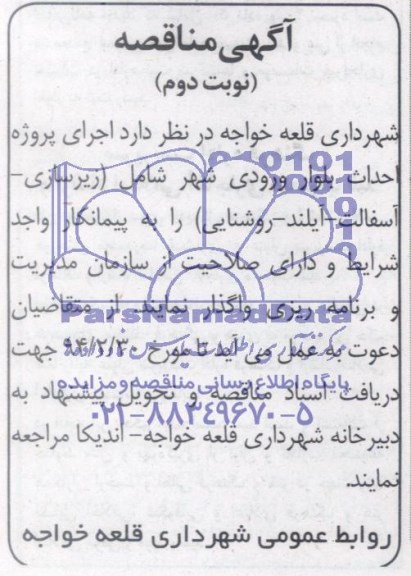 آگهی مناقصه
(نوبت دوم)
شهرداری قلعه خواجه در نظر دارد اجرای پروژه
احداث بلوار ورودی شهر شامل (زیرسازی-
آسفالت-آیلند-روشنایی) را به پیمانکار واجد
شرایط و دارای صلاحیت از سازمان مدیریت
و برنامه ریزی واگذار نماید. از متقاضیان
ParsNamadData
دعوت به عمل می آید تا مورخ ۹۴/۲/۳۰ جهت
پایگاه اطلاع رسانی مناقصه و مزایده
دریافت اسناد مناقصه و تحویل پیشنهاد به
۰۲۱-۸۸۳۴۹۶۷۰-۵
دبیرخانه شهرداری قلعه خواجه- اندیکا مراجعه
نمایند.
روابط عمومی شهرداری قلعه خواجه